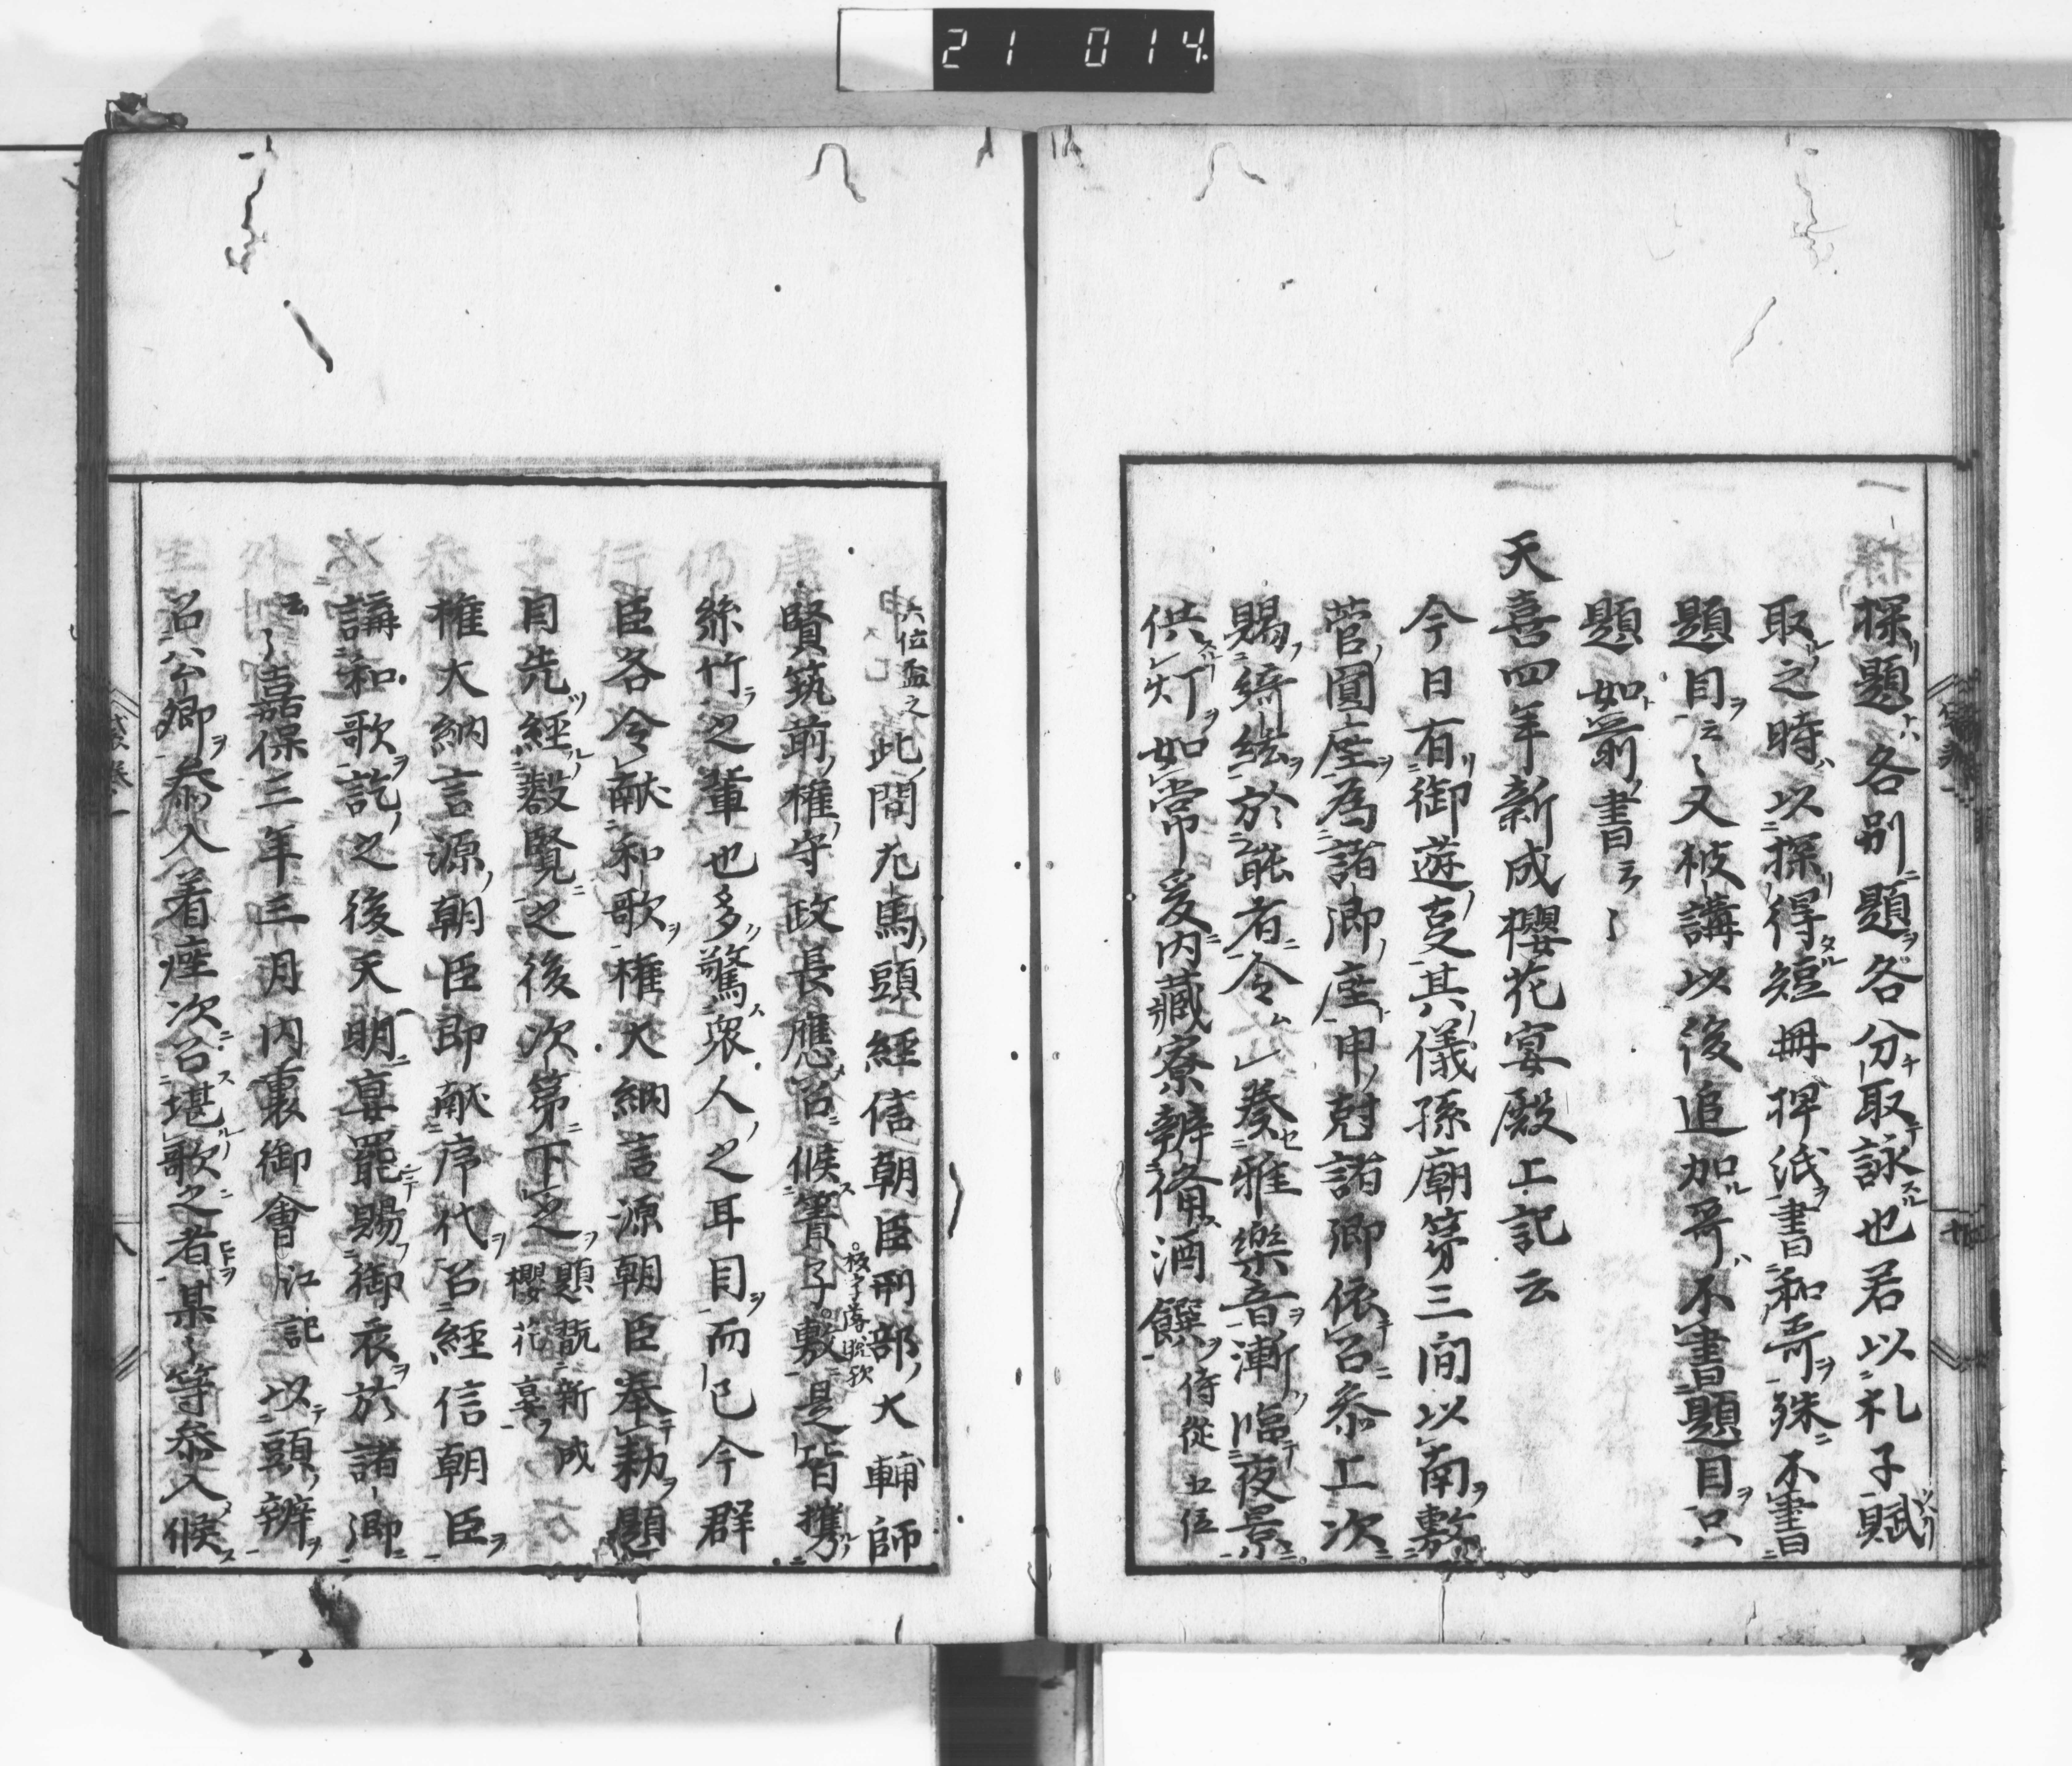 21 014.
探題各別題各分取詠也若以礼子賦
取之時以探得短冊押紙書和哥殊不書
題目云〻又被講以後追加哥不書題目只
題如前書云〻
天喜四年新成櫻花宴殿上記云
今日有御遊夏其儀孫廟第三間以南敷
菅圓座為諸卿座申尅諸卿依召参上次
賜綺絃於能者令奏雅樂音漸臨夜景
供灯如常爰内藏寮辨備酒饌侍從五位
六位盃之此間左馬頭經信朝臣刑部大輔師
賢筑前權守政長應召候簀子敷是皆攜
板子落脱歟
絲竹之輩也多驚衆人之耳目而已今群
臣各令献和歌權大納言源朝臣奉勅題
目先經叡覧之後次第下之題翫新成櫻花宴
權大納言源朝臣即献序代召經信朝臣
講和歌訖之後天明宴罷賜御衣於諸卿
云〻嘉保三年三月内裏御會江記以頭辨
召公卿参入着座次召堪歌之者某〻等参入候